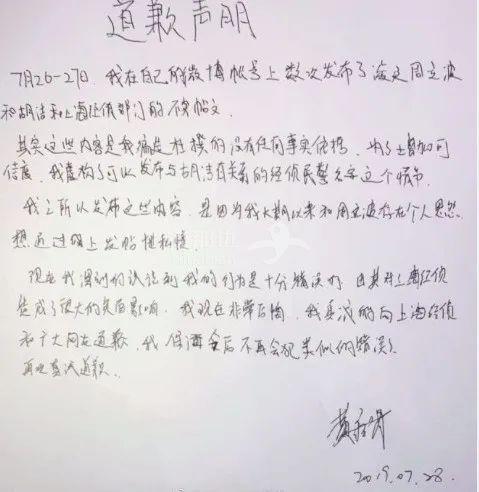 道歉声明
7月26-27日,我在自己的微博帐号上数次发布了污蔑周立波
和胡洁和上海经侦部门的不实帖文.
其实这些内容是我编造杜撰的没有任何事实依据,为了增加可
信度,我虚构了可以发布与胡洁有关系的经侦民警名字这个情节.
我之所以发布这些内容,是因为我长期以来和周立波存在个人恩怨
想通过网上发帖泄私愤.
现在我深刻的认识到我的行为是十分错误的,尤其对上海经侦
造成了很大的负面影响,我现在非常后悔,我真诚的向上海经侦
和广大网友道歉,我保证今后不再会犯类似的错误了
再次真诚道歉.
黄
2019.07.28.